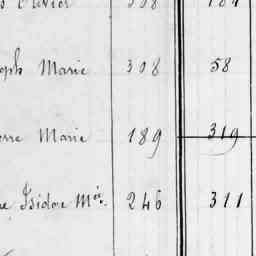 Olivier 308 184
oseph Marie 308 58
erre Marie 189 319
re Isidore Mie. 246 311